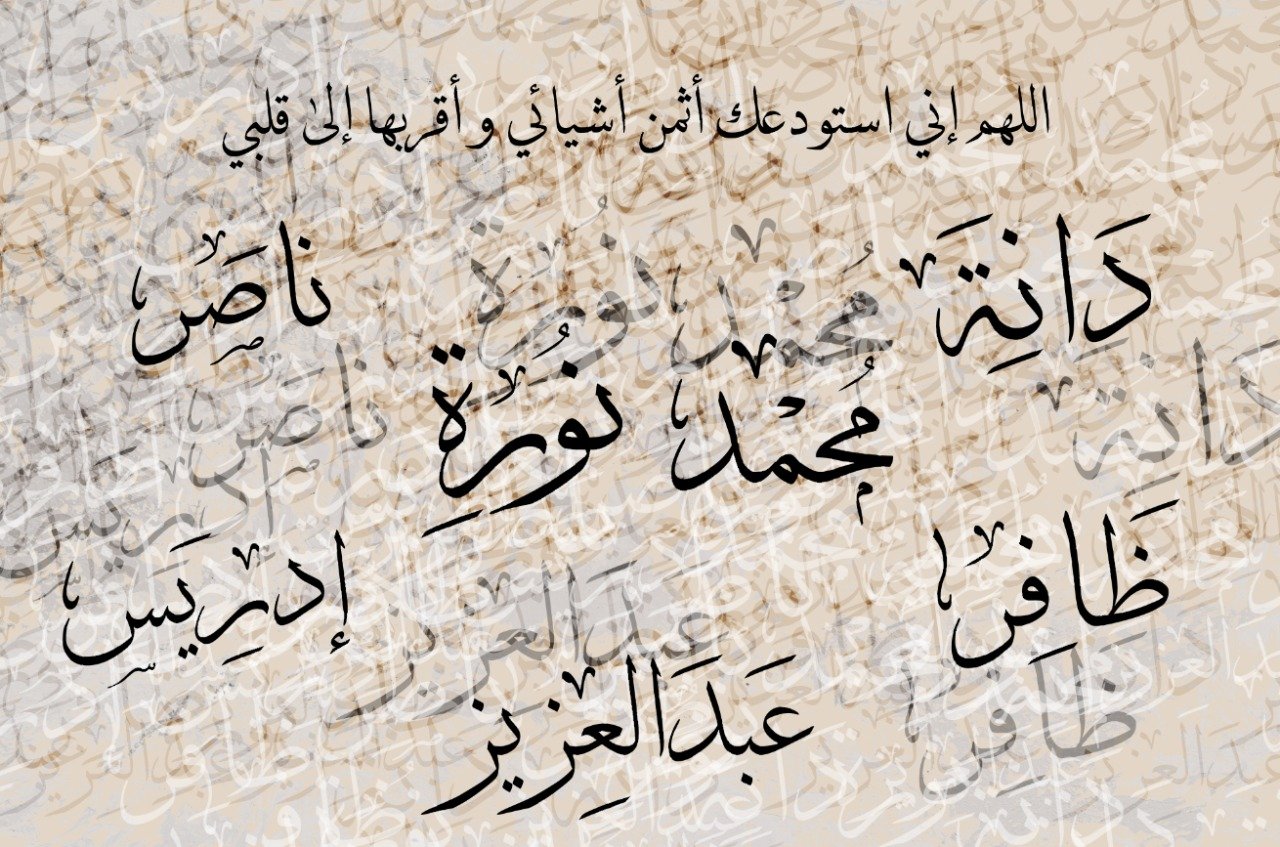 اللهم إني استودعك أثمن أشيائي وأقربها إلى قلبي
دَانِةَ مُحمْد نوُرِة ناصَر
ظَافِر إدرِيَس
عَبدَالعِزيز